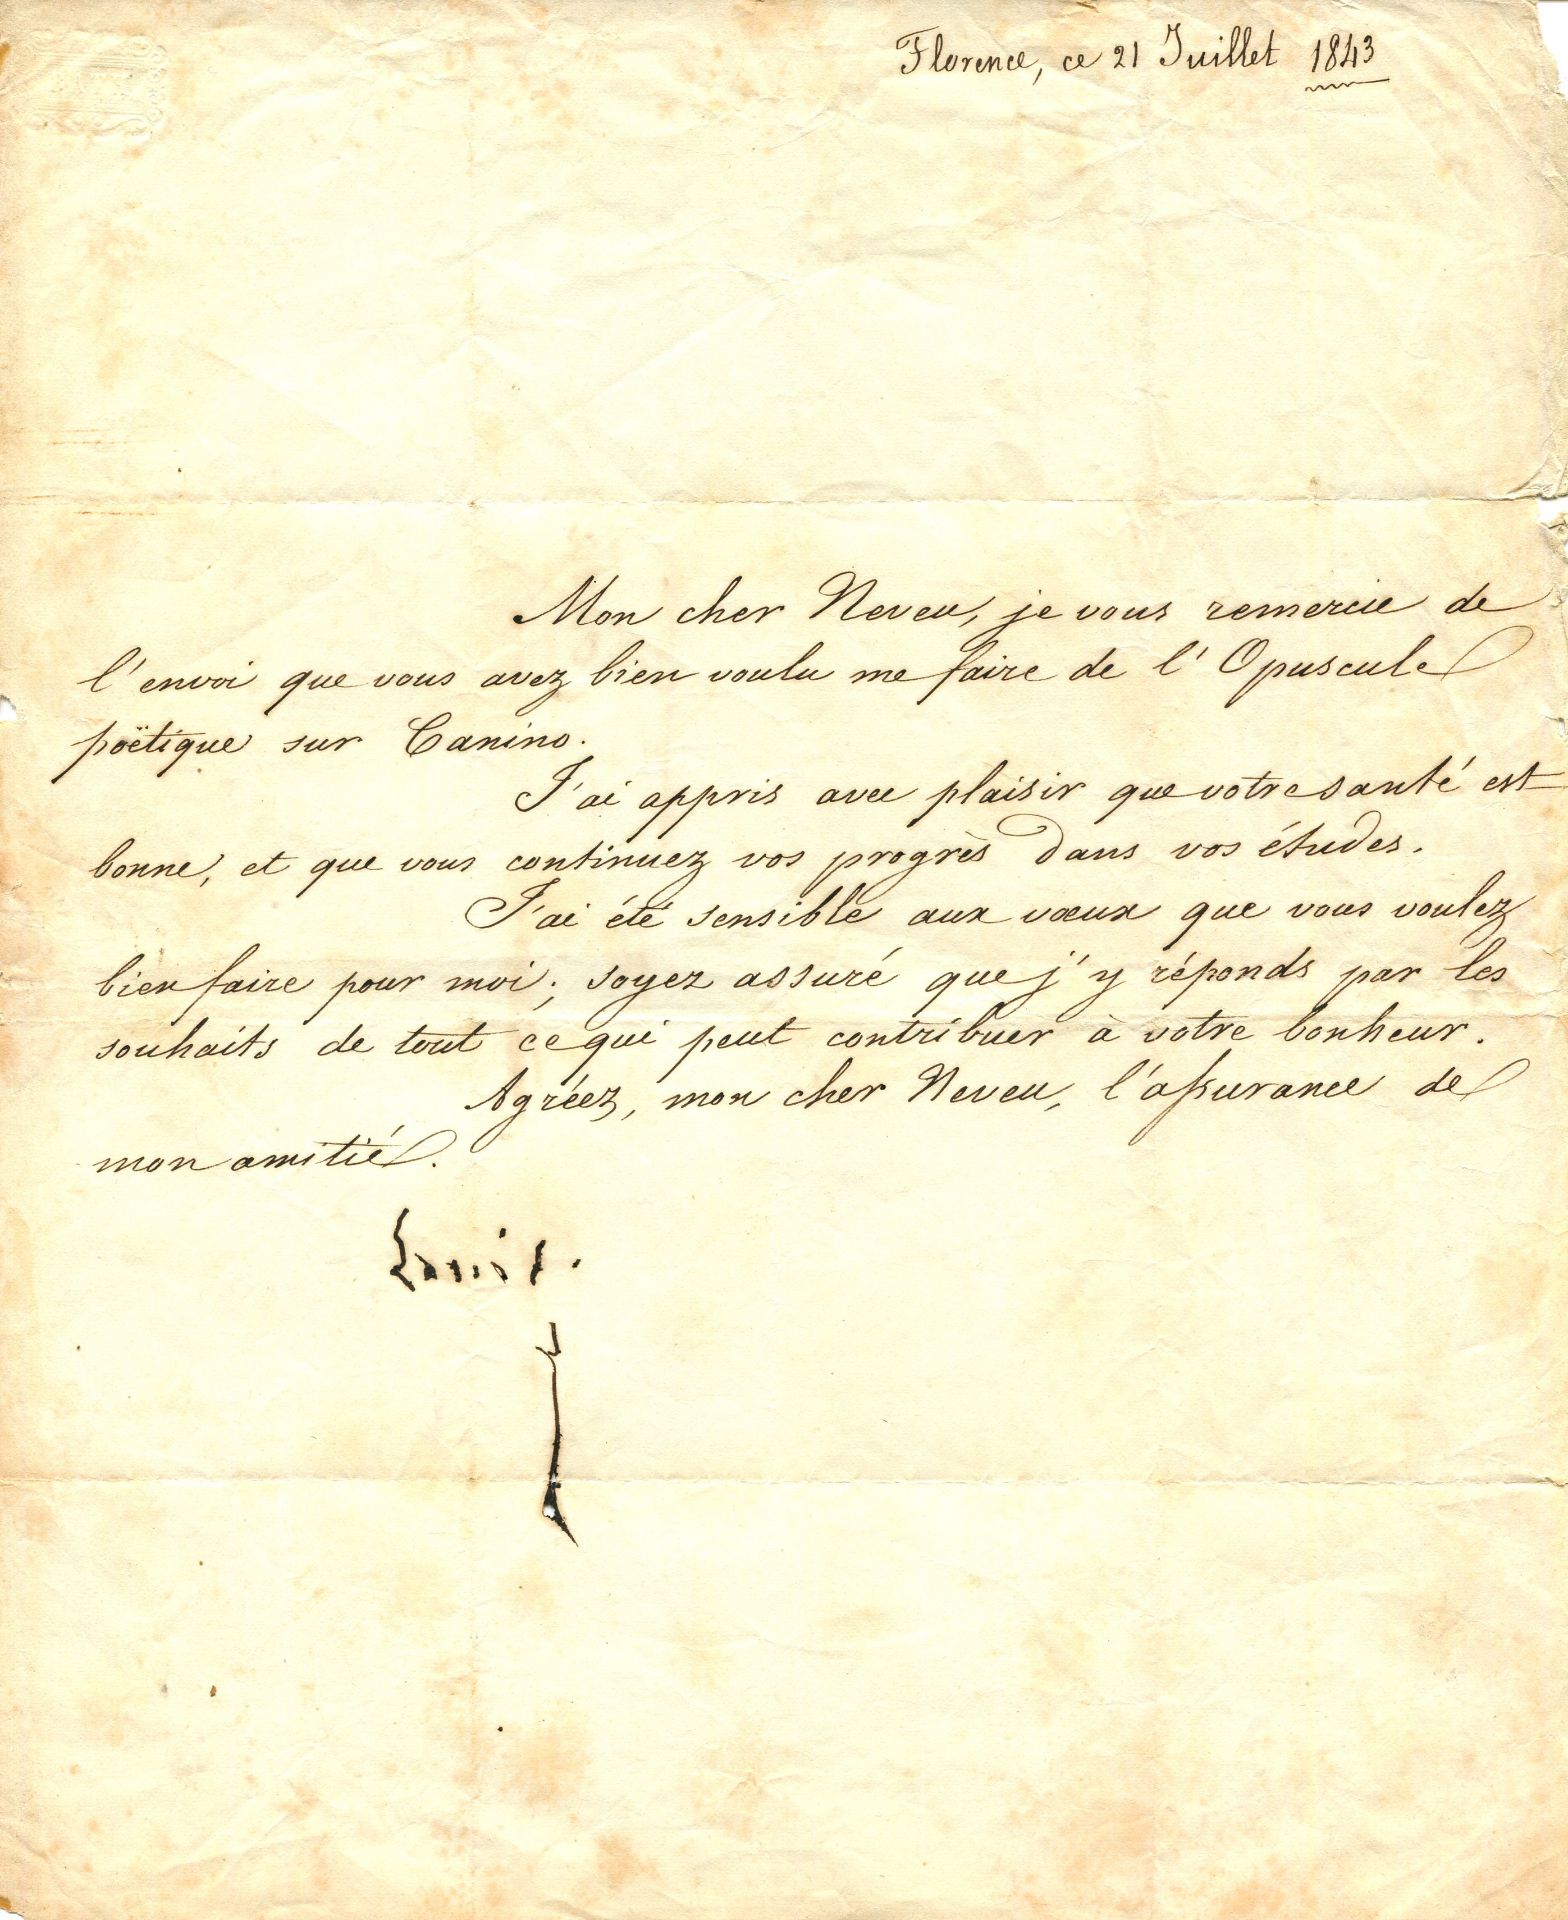 Florence, ce 21 Juillet 1843
Mon cher Neveu, je vous remercie de
l'envoi que vous avez bien voulu me faire de l'Opuscule
poëtique sur Canino.
J'ai appris avec plaisir que votre santé est
bonne, et que vous continuez vos progrès dans vos études.
J'ai été sensible aux vœux que vous voulez
bien faire pour moi; soyez assuré que j'y réponds par les
souhaits de tout ce qui peut contribuer à votre bonheur.
Agréez, mon cher Neveu, l'assurance de
mon amitié.
Louis.